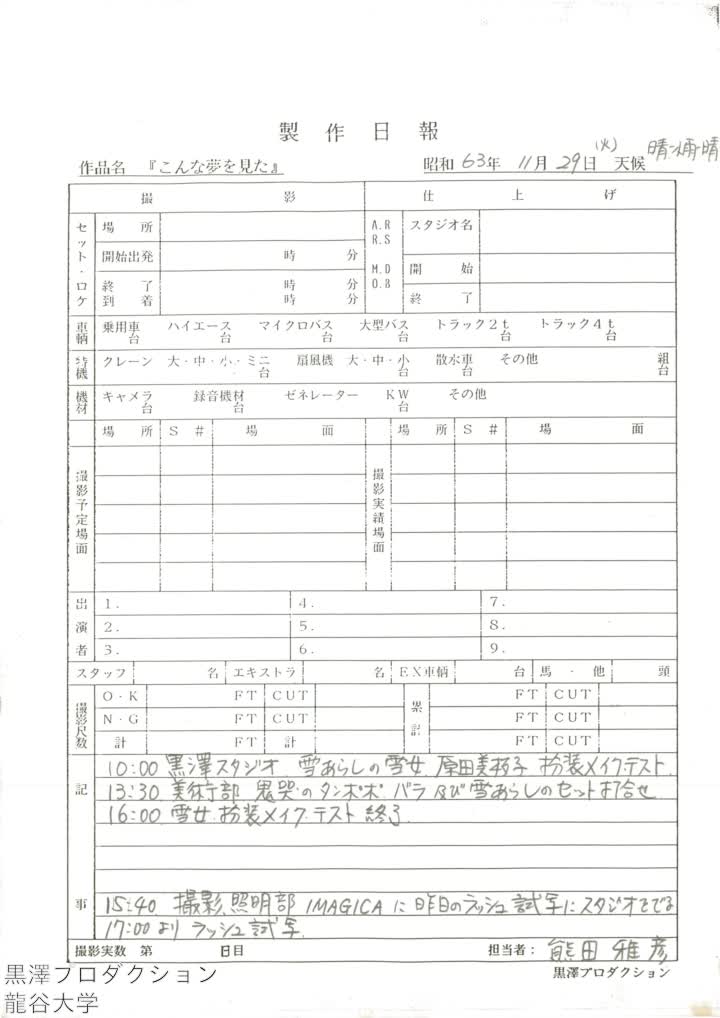 製作日報
作品名 『こんな夢を見た』 昭和63年11月29日(火) 天候 晴
撮影 仕上げ
セット・ロケ 場所 A.R R.S スタジオ名
開始出発 時 分 M.D 0.8 開始
終了 時 分 終了
到着 時 分
車輌 乗用車 台 ハイエース 台 マイクロバス 台 大型バス 台 トラック2t 台 トラック4t 台
特機 クレーン 大・中・小・ミニ 台 扇風機 大・中・小 台 散水車 台 その他 組 台
機材 キャメラ 台 録音機材 台 ゼネレーター KW 台 その他
場所 S# 場面 場所 S# 場面
撮影予定場面 撮影実績場面
出演者 1. 4. 7.
2. 5. 8.
3. 6. 9.
スタッフ 名 エキストラ 名 EX車輌 台 馬・他 頭
撮影尺数 O・K FT CUT 累計 FT CUT
N・G FT CUT FT CUT
計 FT 計 FT CUT
記事
10:00 黒澤スタジオ 雪あらしの雪女 原田美枝子 扮装メイクテスト
13:30 美術部 鬼哭のタンポポ バラ 及び雪あらしのセット打合せ
16:00 雪女 扮装メイクテスト 終了
15:40 撮影、照明部 IMAGICAに昨日のラッシュ試写にスタジオをでる
17:00より ラッシュ試写
撮影実数 第 日目 担当者: 熊田雅彦
黒澤プロダクション
黒澤プロダクション
龍谷大学